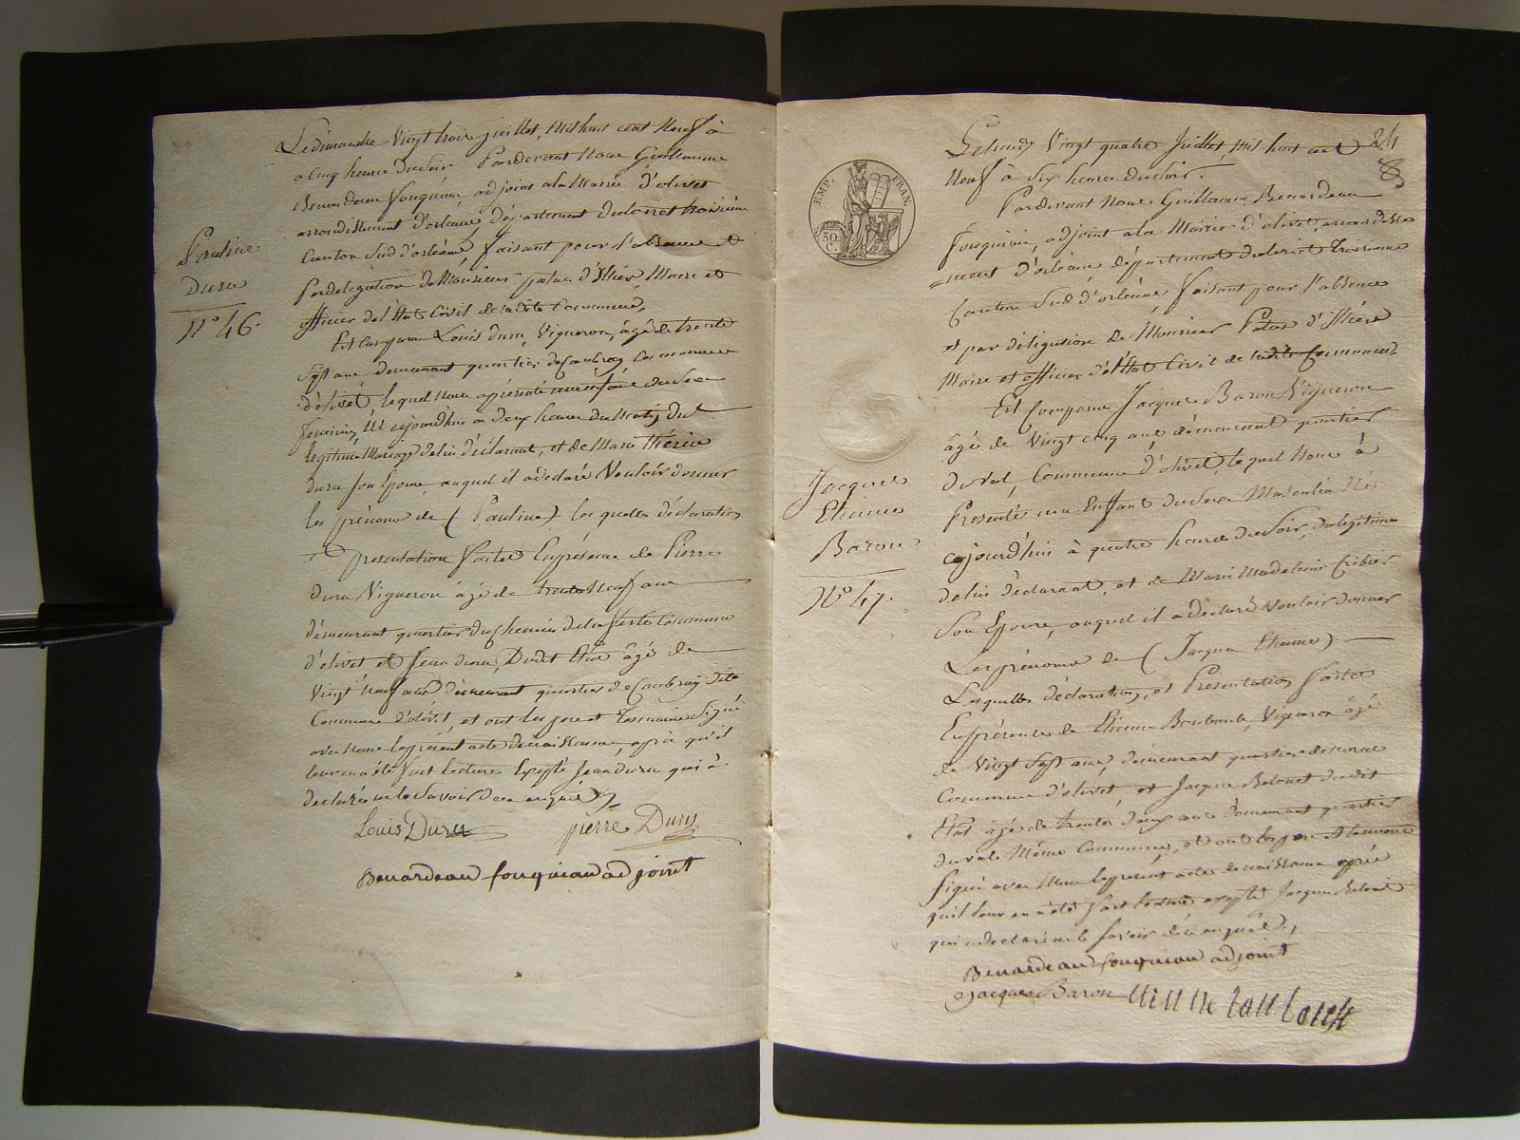 Pauline
Duru
N° 46.
Le dimanche Vingt trois juillet, mil huit cent Neuf à
a Cinq heures Du Soir Pardevant Nous Guillaume
Benardeau Fouqueau, adjoint a la Mairie d'olivet
arrondissement d'orleans, département du loiret troisieme
Canton Sud d'orleans, faisant pour l'absence et
Par délégation de Monsieur d'Illiers, Maire et
officier de l'Etat Civil de la dite Commune,
Est Comparu Louis duru, Vigneron, âgé de trente
Sept ans demeurant quartier de Caubray Commune
d'olivet, lequel nous a présenté un enfant du Sexe
feminin, né aujourdhui a deux heures du Matin, du
légitime Mariage de lui déclarant, et de Marie Thérèse
duru Son Epouse, auquel il a déclaré Vouloir donner
les prénoms de (Pauline) les quelles déclaration
et presentation faites En présence de Pierre
duru Vigneron âgé de trente Neuf ans
demeurant quartier du chemin de la ferté Commune
d'olivet et Jean duru, Dudit Etat âgé de
Vingt Neuf ans demeurant quartier de Caubray dite
Commune d'olivet, et ont les pere et Temoins Signé
avec Nous le présent acte de naissance, après qu'il
leur en a été fait lecture Excepté Jean duru qui a
declaré ne le Savoir de ce enquis
Louis Duru pierre Duru
Benardeau fouqueau adjoint
24
EMP. FRAN.
50
C.
Jacques
Etienne
Baron
N° 47.
Le lundi Vingt quatre Juillet, Mil huit cent
Neuf à Six heures du Soir.
Pardevant Nous Guillaume Benardeau
fouqueau, adjoint a la Mairie d'olivet, arrondisse
ment d'orléans département du loiret troisieme
Canton Sud d'orléans, faisant pour l'absence
et par délégation de Monsieur d'Illiers
Maire et officier de l'Etat Civil de ladite Commune
Est Comparu Jacques Baron Vigneron
âgé de Vingt cinq ans demeurant quartier
du Val, Commune d'olivet, lequel Nous à
Presenté un Enfant du Sexe Masculin Né
aujourd'hui à quatre heures du Soir, du légitime
de lui déclarant, et de Marie Madeleine Cribier
Son Epouse, auquel il a déclaré Vouloir donner
Les prénoms de (Jacques Etienne)
Lesquelles déclaration, et Présentation faites
En présence de Etienne Vigneron âgé
de Vingt Sept ans, demeurant quartier
Commune d'olivet et Jacques dudit
Etat âgé de trente deux ans Demeurant quartier
du Val Même Commune, et ont les pere et temoins
Signé avec Nous le présent acte de naissance après
qu'il leur en a été fait lecture excepté Jacques
qui a declaré ne le Savoir de ce enquis.
Benardeau fouqueau adjoint
Jacques Baron